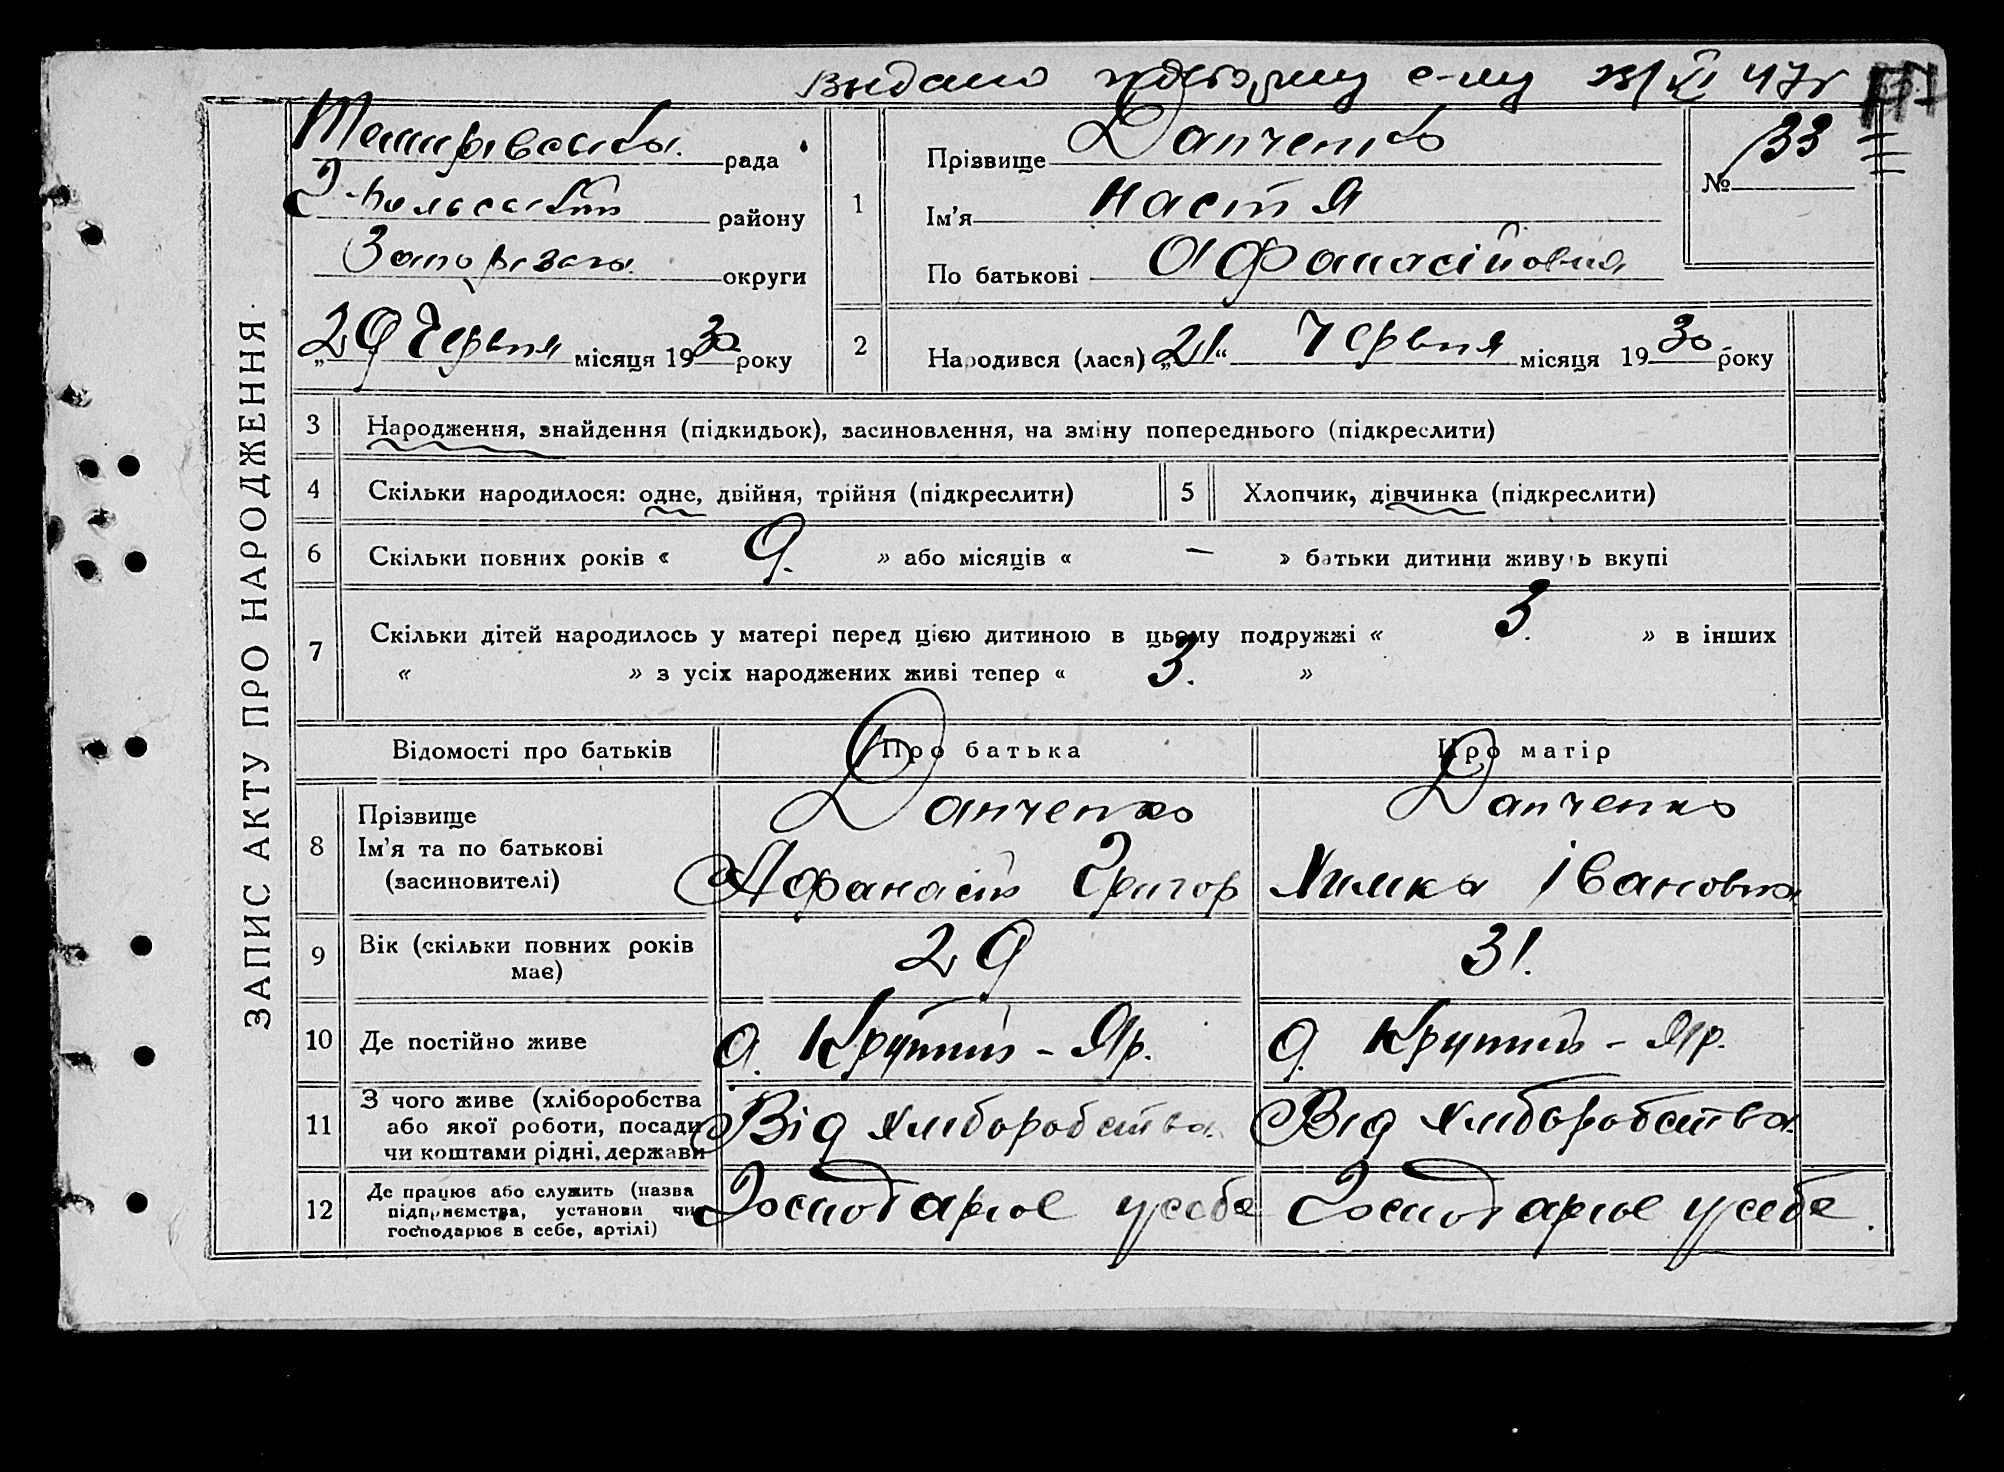 Выдано повторну с-му 23/XI 47г
ЗАПИС АКТУ ПРО НАРОДЖЕННЯ
рада
району
Запорізьк. округи
„29 Червня місяця 1930 року
1 Прізвище Данченко
Ім'я Настя
По батькові Афанасіївня
№ 33
2 Народився (лася) „21“ Червня місяця 1930 року
3 Народження, знайдення (підкидьок), засиновлення, на зміну попереднього (підкреслити)
4 Скільки народилося: одне, двійня, трійня (підкреслити) 5 Хлопчик, дівчинка (підкреслити)
6 Скільки повних років « 9. » або місяців « – » батьки дитини живуть вкупі
7 Скільки дітей народилось у матері перед цією дитиною в цьому подружжі « 3. » в інших
« » з усіх народжених живі тепер « 3. »
Відомості про батьків Про батька Про матір
8 Прізвище Данченко Данченко
Ім'я та по батькові Афанасій Григор Химка Івановна
(засиновителі)
9 Вік (скільки повних років має) 29 31.
10 Де постійно живе д. Крутий-Яр. д. Крутий-Яр.
11 З чого живе (хліборобства або якої роботи, посади чи коштами рідні, держави Від хліборобства. Від хліборобства.
12 Де працює або служить (назва підприємства, установи чи господарює в себе, артілі) Господарює у себе Господарює у себе.